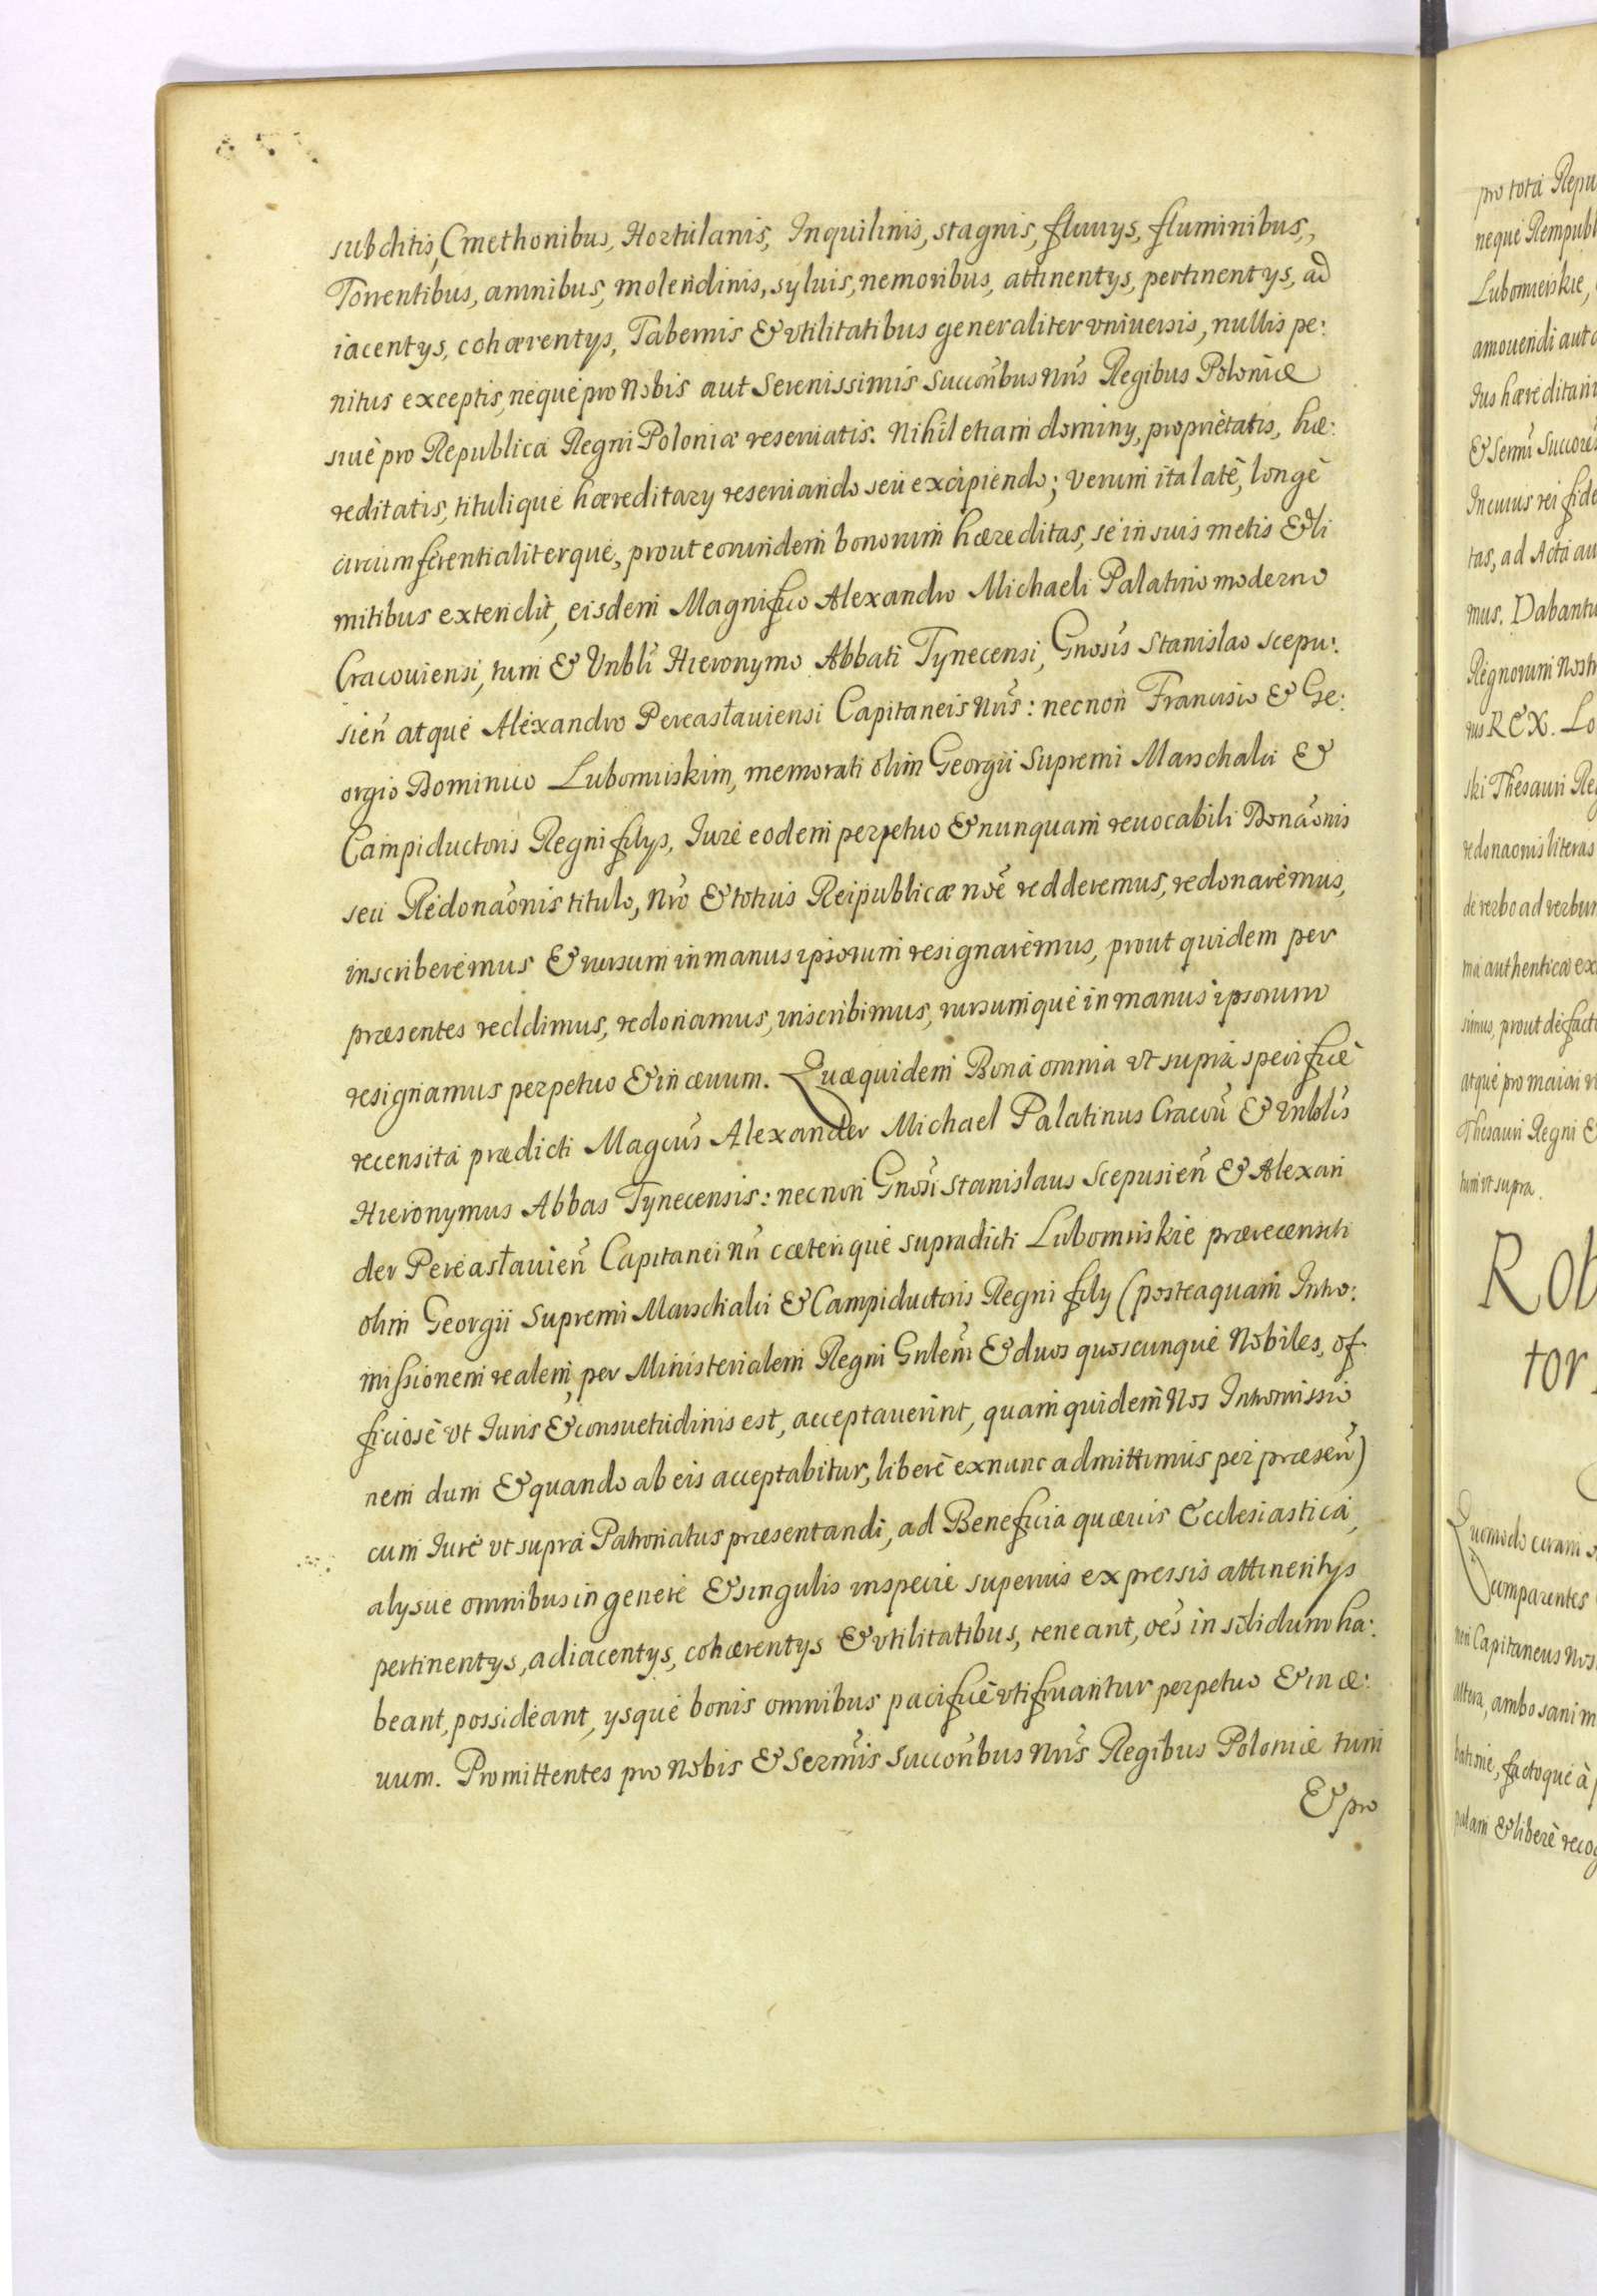 subditis, Cmethonibus, Hortulanis, Inquilinis, stagnis, fluuys, fluminibus,
Torrentibus, amnibus, molendinis, syluis, nemoribus, attinentys, pertinentys, ad
iacentys, cohærentys, Tabernis & vtilitatibus generaliter vniuersis, nullis pe:
nitus exceptis, neque pro Nobis aut Serenissimis Succoribus Nris Regibus Poloniæ
siuè pro Republica Regni Poloniæ reseruatis. Nihil etiam dominy, proprietatis, hæ:
reditatis, tituliqué hæreditary reseruando seu excipiendo; Verum ita latè, longè
circumferentialiterqué, prout eorundem bonorum hæreditas, se in suis metis & li
mitibus extendit, eisdem Magnifico Alexandro Michaeli Palatino moderno
Cracouiensi, tum & Vnbli Hieronymo Abbati Tynecensi, Gnosis Stanislao Scepu:
sien atqué Alexandro Pereasłauiensi Capitaneis Nris: necnon Francisco & Ge:
orgio Dominico Lubomirskim, memorati olim Georgii Supremi Marschalci &
Campiductoris Regni filys, Iuré eodem perpetuo & nunquam reuocabili Donaonis
seu Redonaonis titulo, Nro & totius Reipublicæ noe redderemus, redonaremus,
inscriberemus & rursum in manus ipsorum resignaremus, prout quidem per
præsentes reddimus, redonamus, inscribimus, rursumqué in manus ipsorum
resignamus perpetuo & in æuum. Quæquidem Bona omnia vt supra specificè
recensita prædicti Magcus Alexander Michael Palatinus Cracou & Vnblis
Hieronymus Abbas Tynecensis: necnon Gnosi Stanislaus Scepusien & Alexan
der Pereasłauien Capitanei Nri cæteriqué supradicti Lubomirskie præcensiti
olim Georgii Supremi Marschalci & Campiductoris Regni fily (posteaquam Intro:
missionem realem, per Ministerialem Regni Gnlem & duos quoscunqué Nobiles, of
ficiosè vt Iuris & consuetudinis est, acceptauerint, quam quidem Nos Intromissio
nem dum & quando ab eis acceptabitur, liberè exnunc admittimus per præsen)
cum Iuré vt supra Patronatus præsentandi, ad Beneficia quæuis Ecclesiastica,
alysue omnibus in genere & singulis in specie superius expressis attinentys
pertinentys, adiacentys, cohærentys & vtilitatibus, teneant, oes in solidum ha:
beant, possideant, ysqué bonis omnibus pacificè vtifruantur perpetuo & in æ:
uum. Promittentes pro Nobis & Sermis Succoribus Nris Regibus Poloniæ tum
& pro
pro tota Repu
neque Rempubl
Lubomirskie,
amouendi aut
Ius hæreditari
& Sermi Succores
In cuius rei fide
tas, ad Acta au
mus. Dabantu
Regnorum Nostr
REX. Lo
ski Thesauri Reg
redonaonis literas
de verbo ad verbum
authentica ex
simus, prout de facto
atqué pro maiori
Thesauri Regni &
vt supra.
Rob
tor
Quomodo coram
Comparentes
Capitaneus Nos
altera, ambo sani m
factoqué à
palam & liberè recog